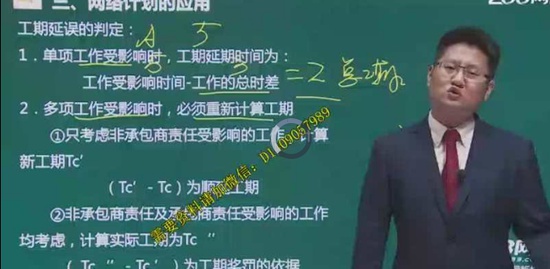 三、网络计划的应用
工期延误的判定： A 5
1．单项工作受影响时，工期延期时间为：
工作受影响时间-工作的总时差 =2
2．多项工作受影响时，必须重新计算工期
①只考虑非承包商责任受影响的工作，计算
新工期Tc′
（Tc′- Tc）为顺延工期
②非承包商责任及承包商责任受影响的工作
均考虑，计算实际工期为Tc ″
（Tc ″- Tc）为工期奖罚的依据
需要资料请加微信：